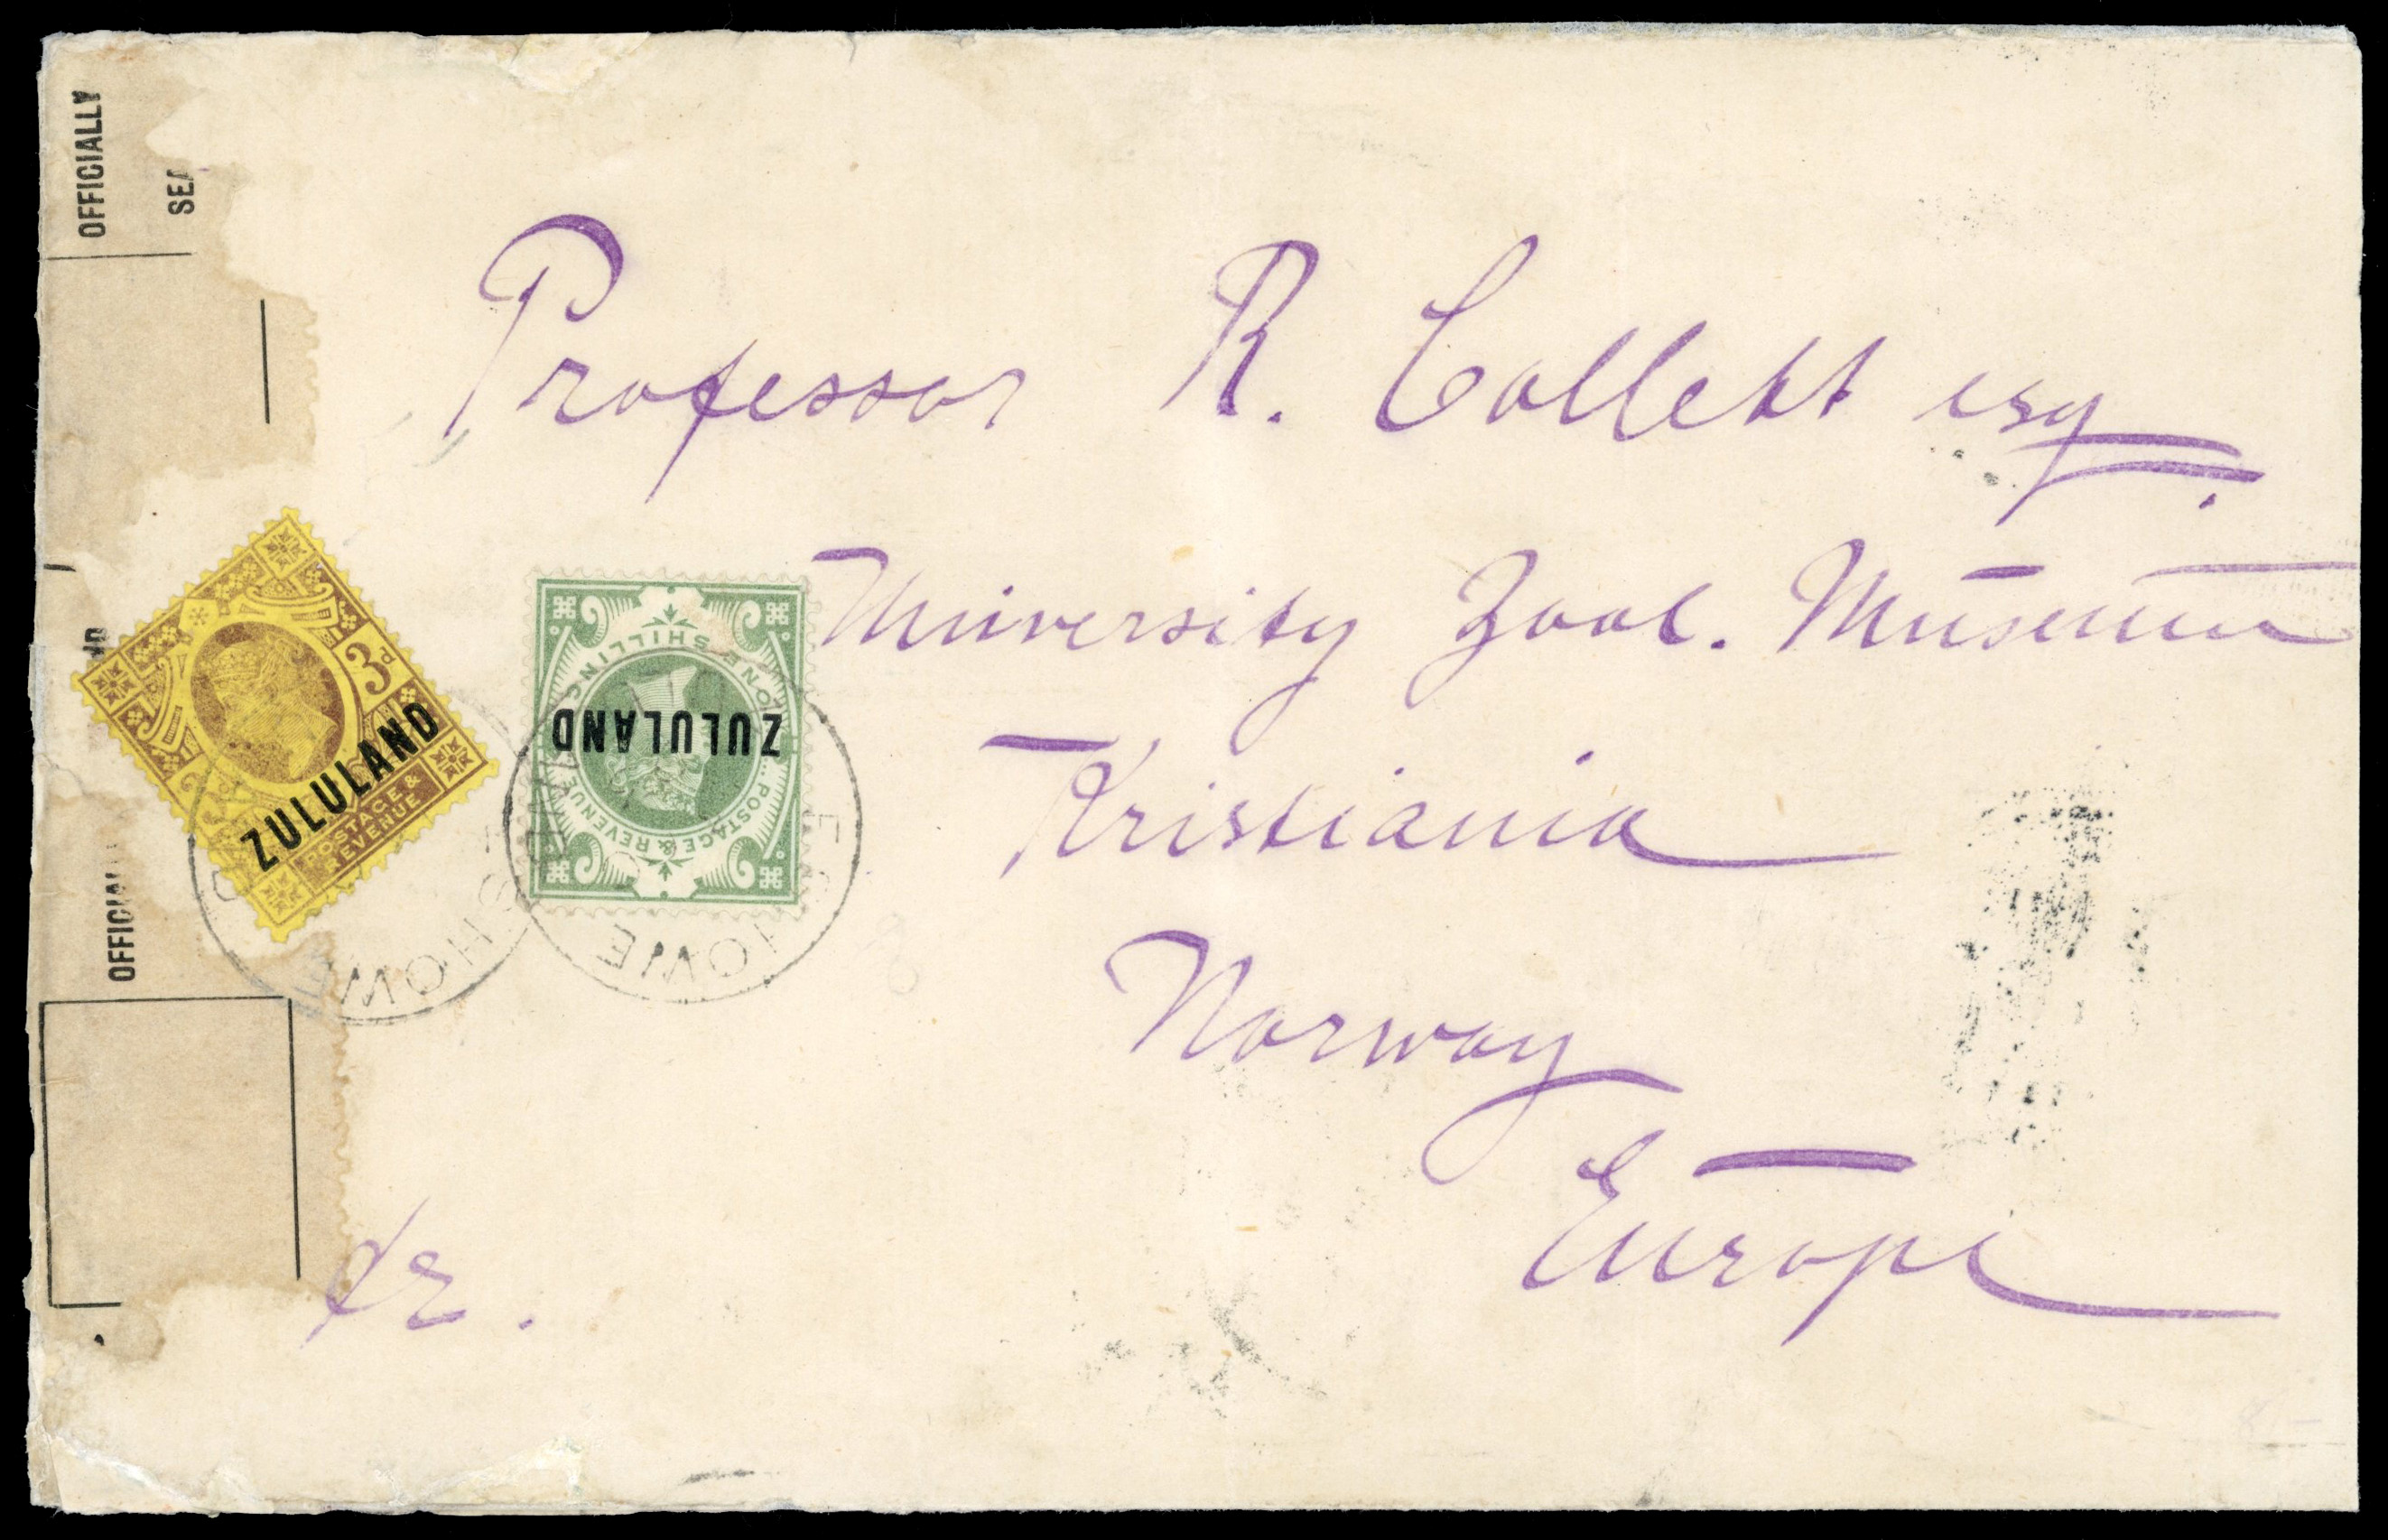 OFFICIALLY
SEA
Professor R. Collett esq.
University Zool. Museum
Kristiania
Norway
Europe
3d
ZULULAND
POSTAGE &
REVENUE
ONE SHILLING
ZULULAND
POSTAGE & REVENUE
ESHOWE
ESHOWE
OFFICIAL